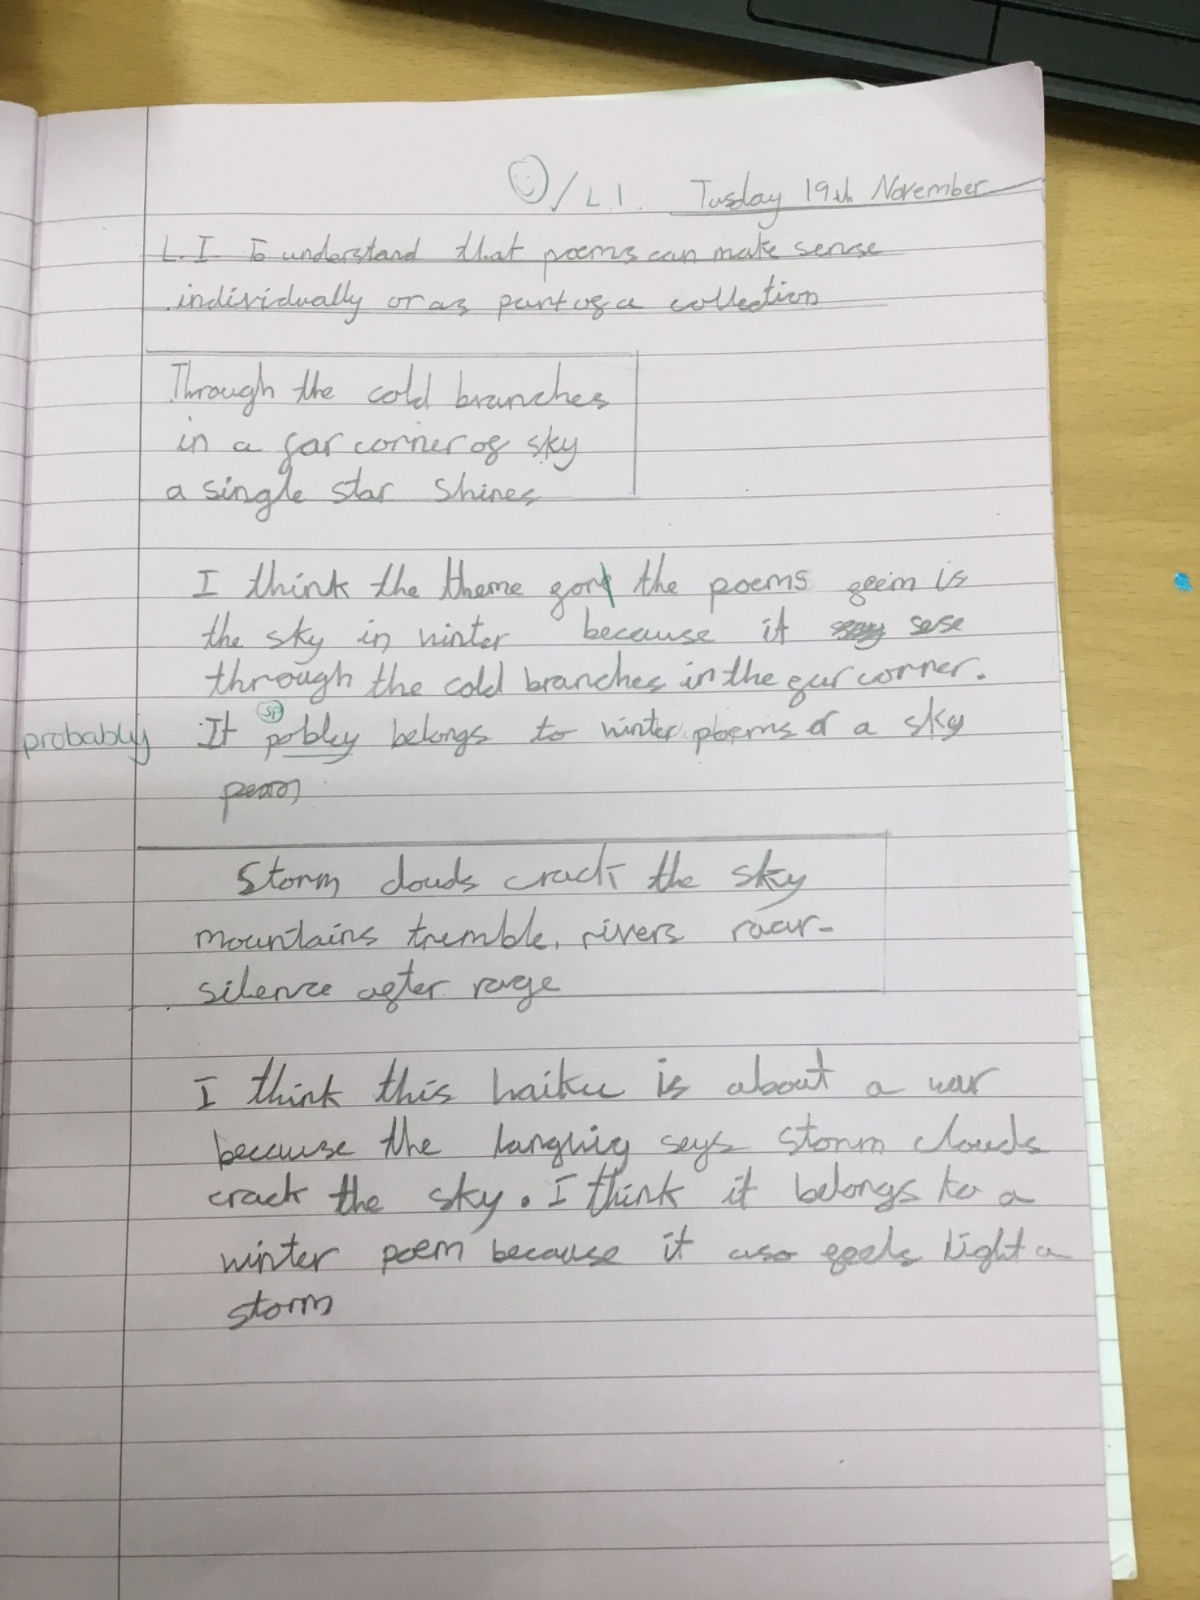 ☺/L.I. Tusday 19th November
L.I. To understand that poems can make sense
individually or as part of a collection
Through the cold branches
in a far corner of sky
a single star shines
I think the theme for the poems is
the sky in winter because it sese
through the cold branches in the far corner.
probably It pobley belongs to winter poems or a sky
sp
Storm clouds crack the sky
mountains tremble, rivers roar-
silence after rage
I think this haiku is about a war
because the languig seys storm clouds
crack the sky. I think it belongs to a
winter poem because it also feels light a
storm